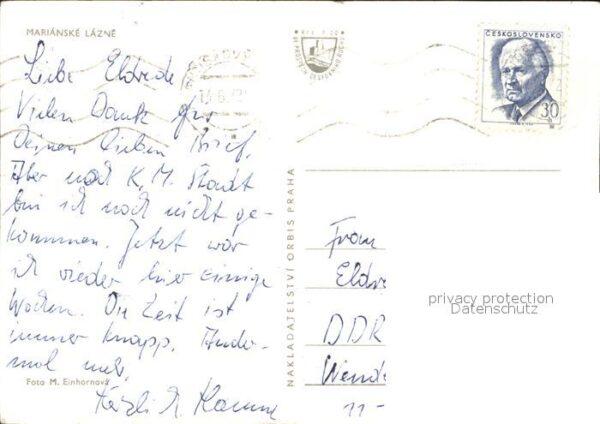 MARIÁNSKÉ LÁZNĚ
ČESKOSLOVENSKO
30
Liebe Eldrede
Vielen Dank für
Deinen lieben Brief,
Aber nach K. M. Stadt
bin ich noch nicht ge-
kommen. Jetzt war
ich wieder hier einige
Wochen. Die Zeit ist
immer knapp. Ander-
mal mehr.
Foto M. Einhornová
NAKLADATELSTVÍ ORBIS PRAHA
Frau
Eldre
privacy protection
Datenschutz
DDR
11-